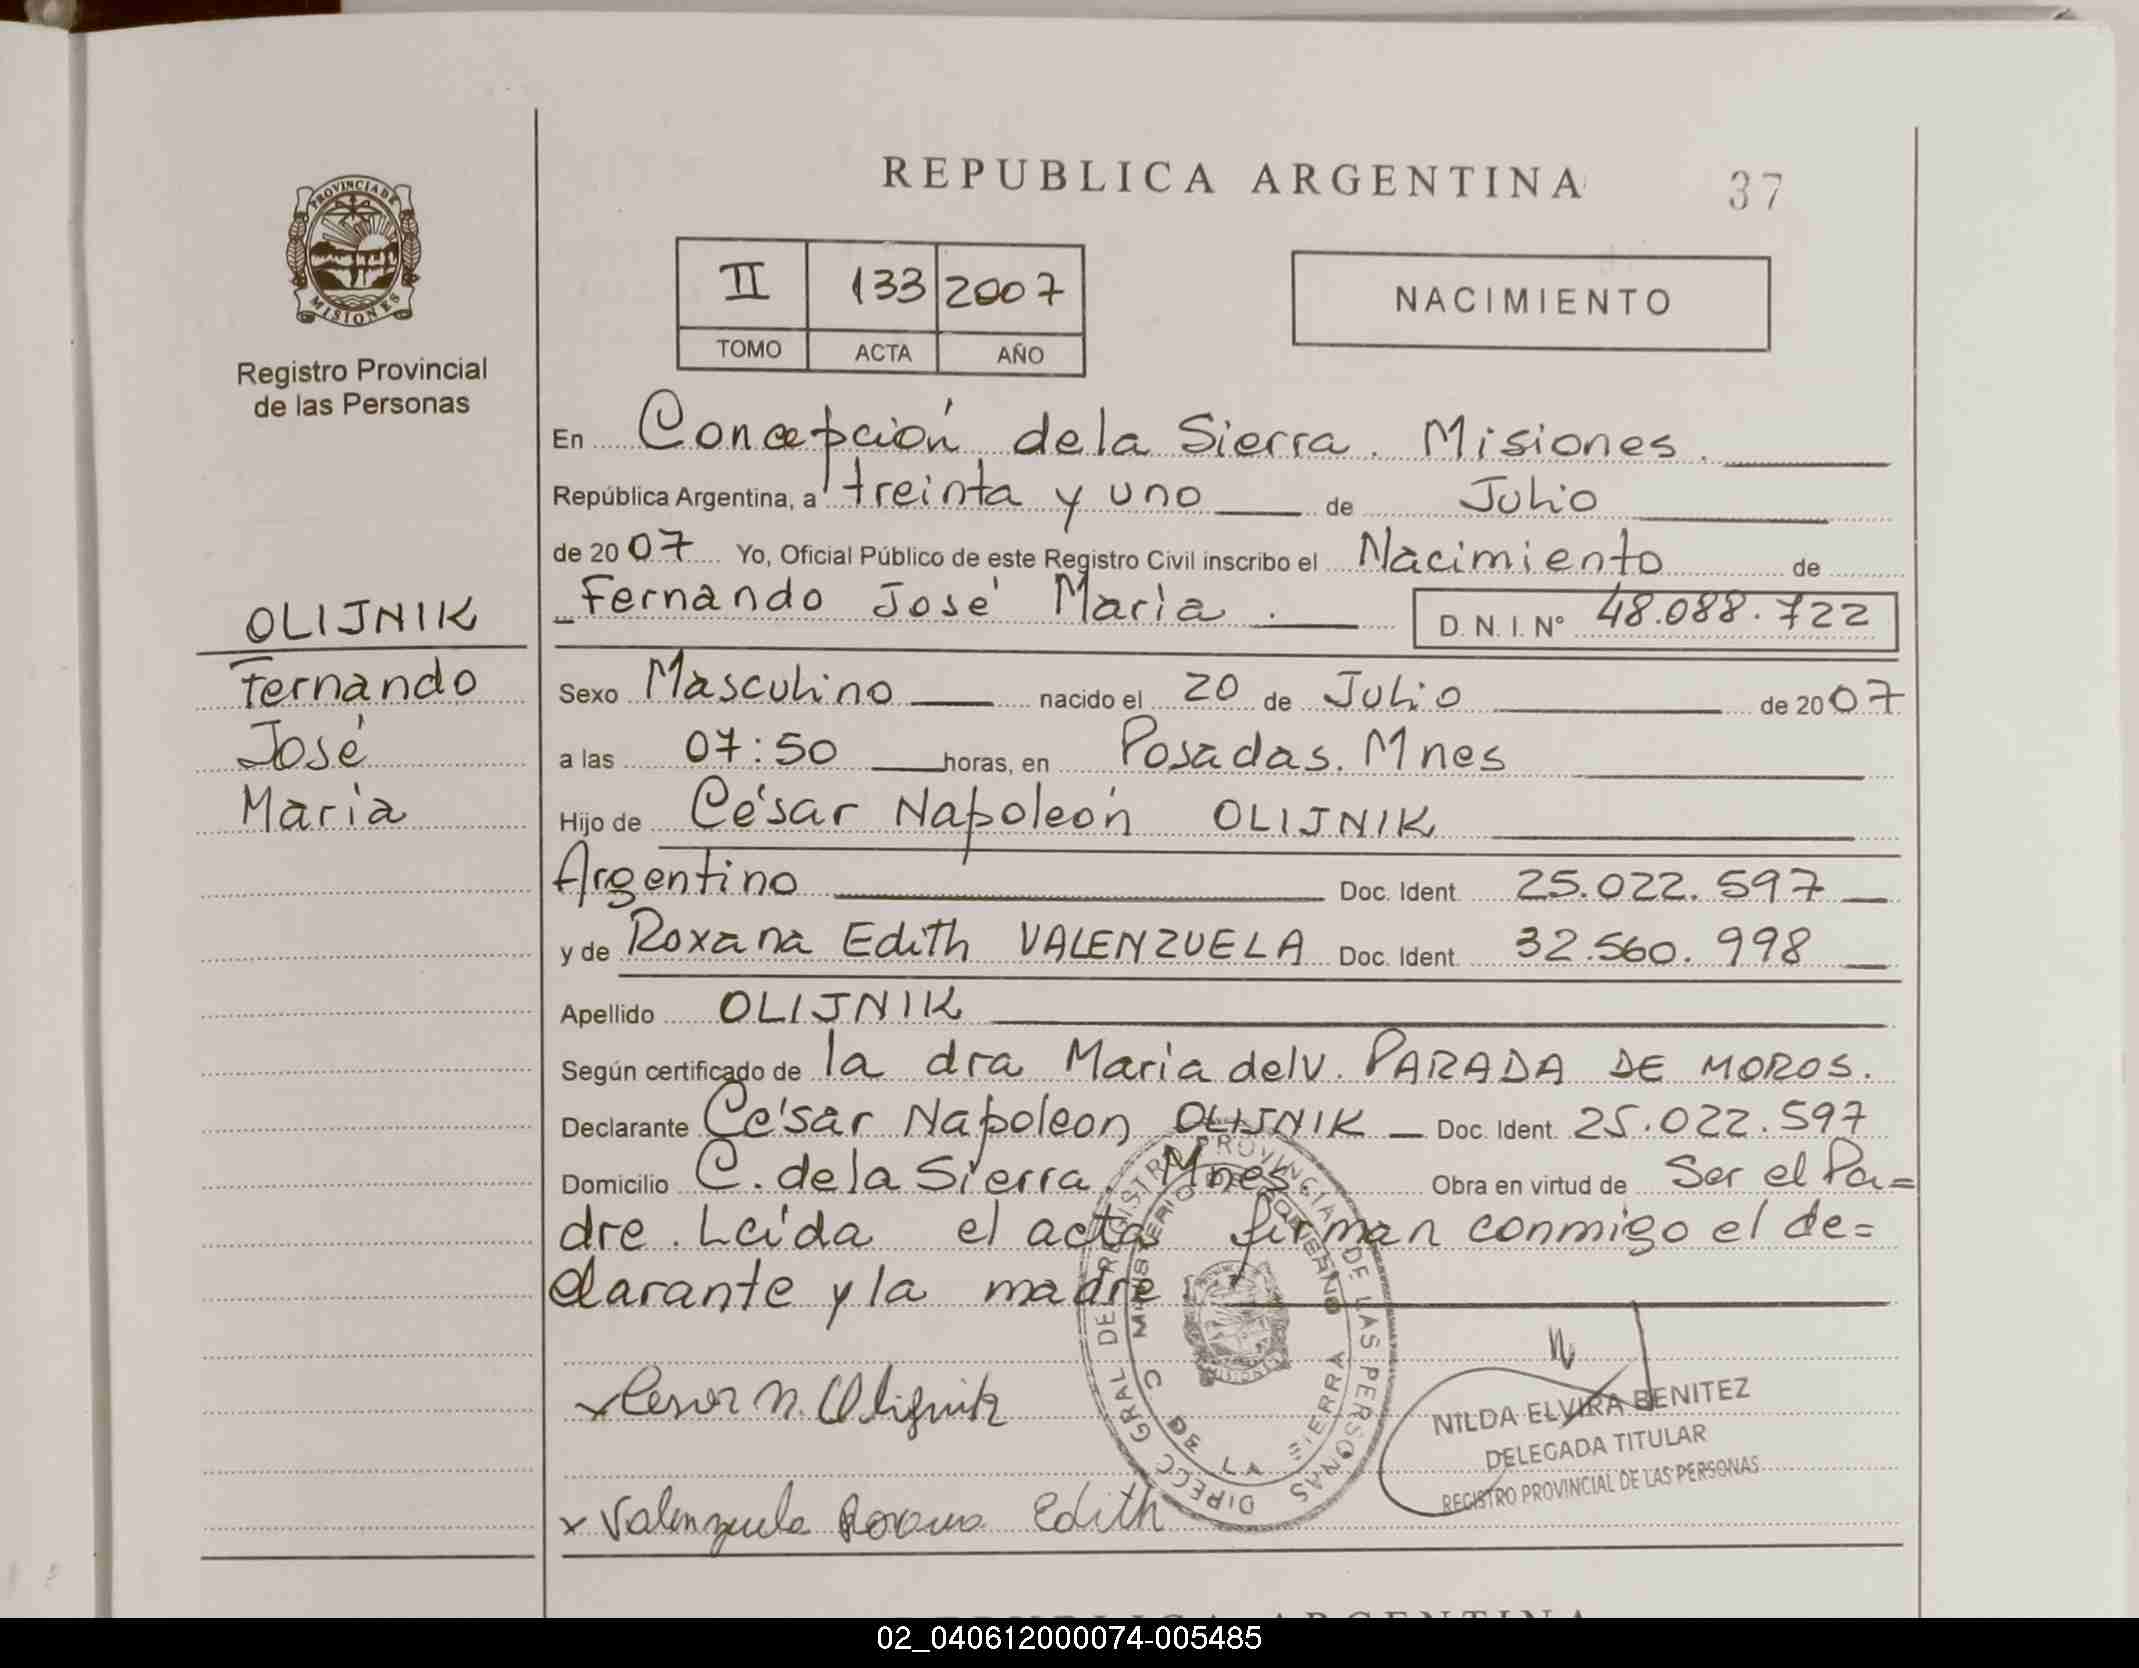 REPUBLICA ARGENTINA
37
PROVINCIA DE
MISIONES
Registro Provincial
de las Personas
II 133 2007
TOMO ACTA AÑO
NACIMIENTO
En Concepción de la Sierra. Misiones.
República Argentina, a treinta y uno de Julio
de 2007 Yo, Oficial Público de este Registro Civil inscribo el Nacimiento de
Fernando José María. D. N. I. N° 48.088.722
OLIJNIK
Fernando
José
María
Sexo Masculino nacido el 20 de Julio de 2007
a las 07:50 horas, en Posadas. Mnes
Hijo de César Napoleón OLIJNIK
Argentino Doc. Ident. 25.022.597
y de Roxana Edith VALENZUELA Doc. Ident. 32.560.998
Apellido OLIJNIK
Según certificado de la dra María del V. PARADA DE MOROS.
Declarante César Napoleon OLIJNIK Doc. Ident. 25.022.597
Domicilio C. de la Sierra. Mnes. Obra en virtud de Ser el Pa=
dre. Leída el acta firman conmigo el de=
clarante y la madre
DIRECC GRAL DEL REGISTRO PROVINCIAL DE LAS PERSONAS
MINISTERIO DE GOBIERNO
C DE LA SIERRA
x Cesar N. Olijnik
x Valenzuela Roxana Edith
NILDA ELVIRA BENITEZ
DELEGADA TITULAR
REGISTRO PROVINCIAL DE LAS PERSONAS
02_040612000074-005485